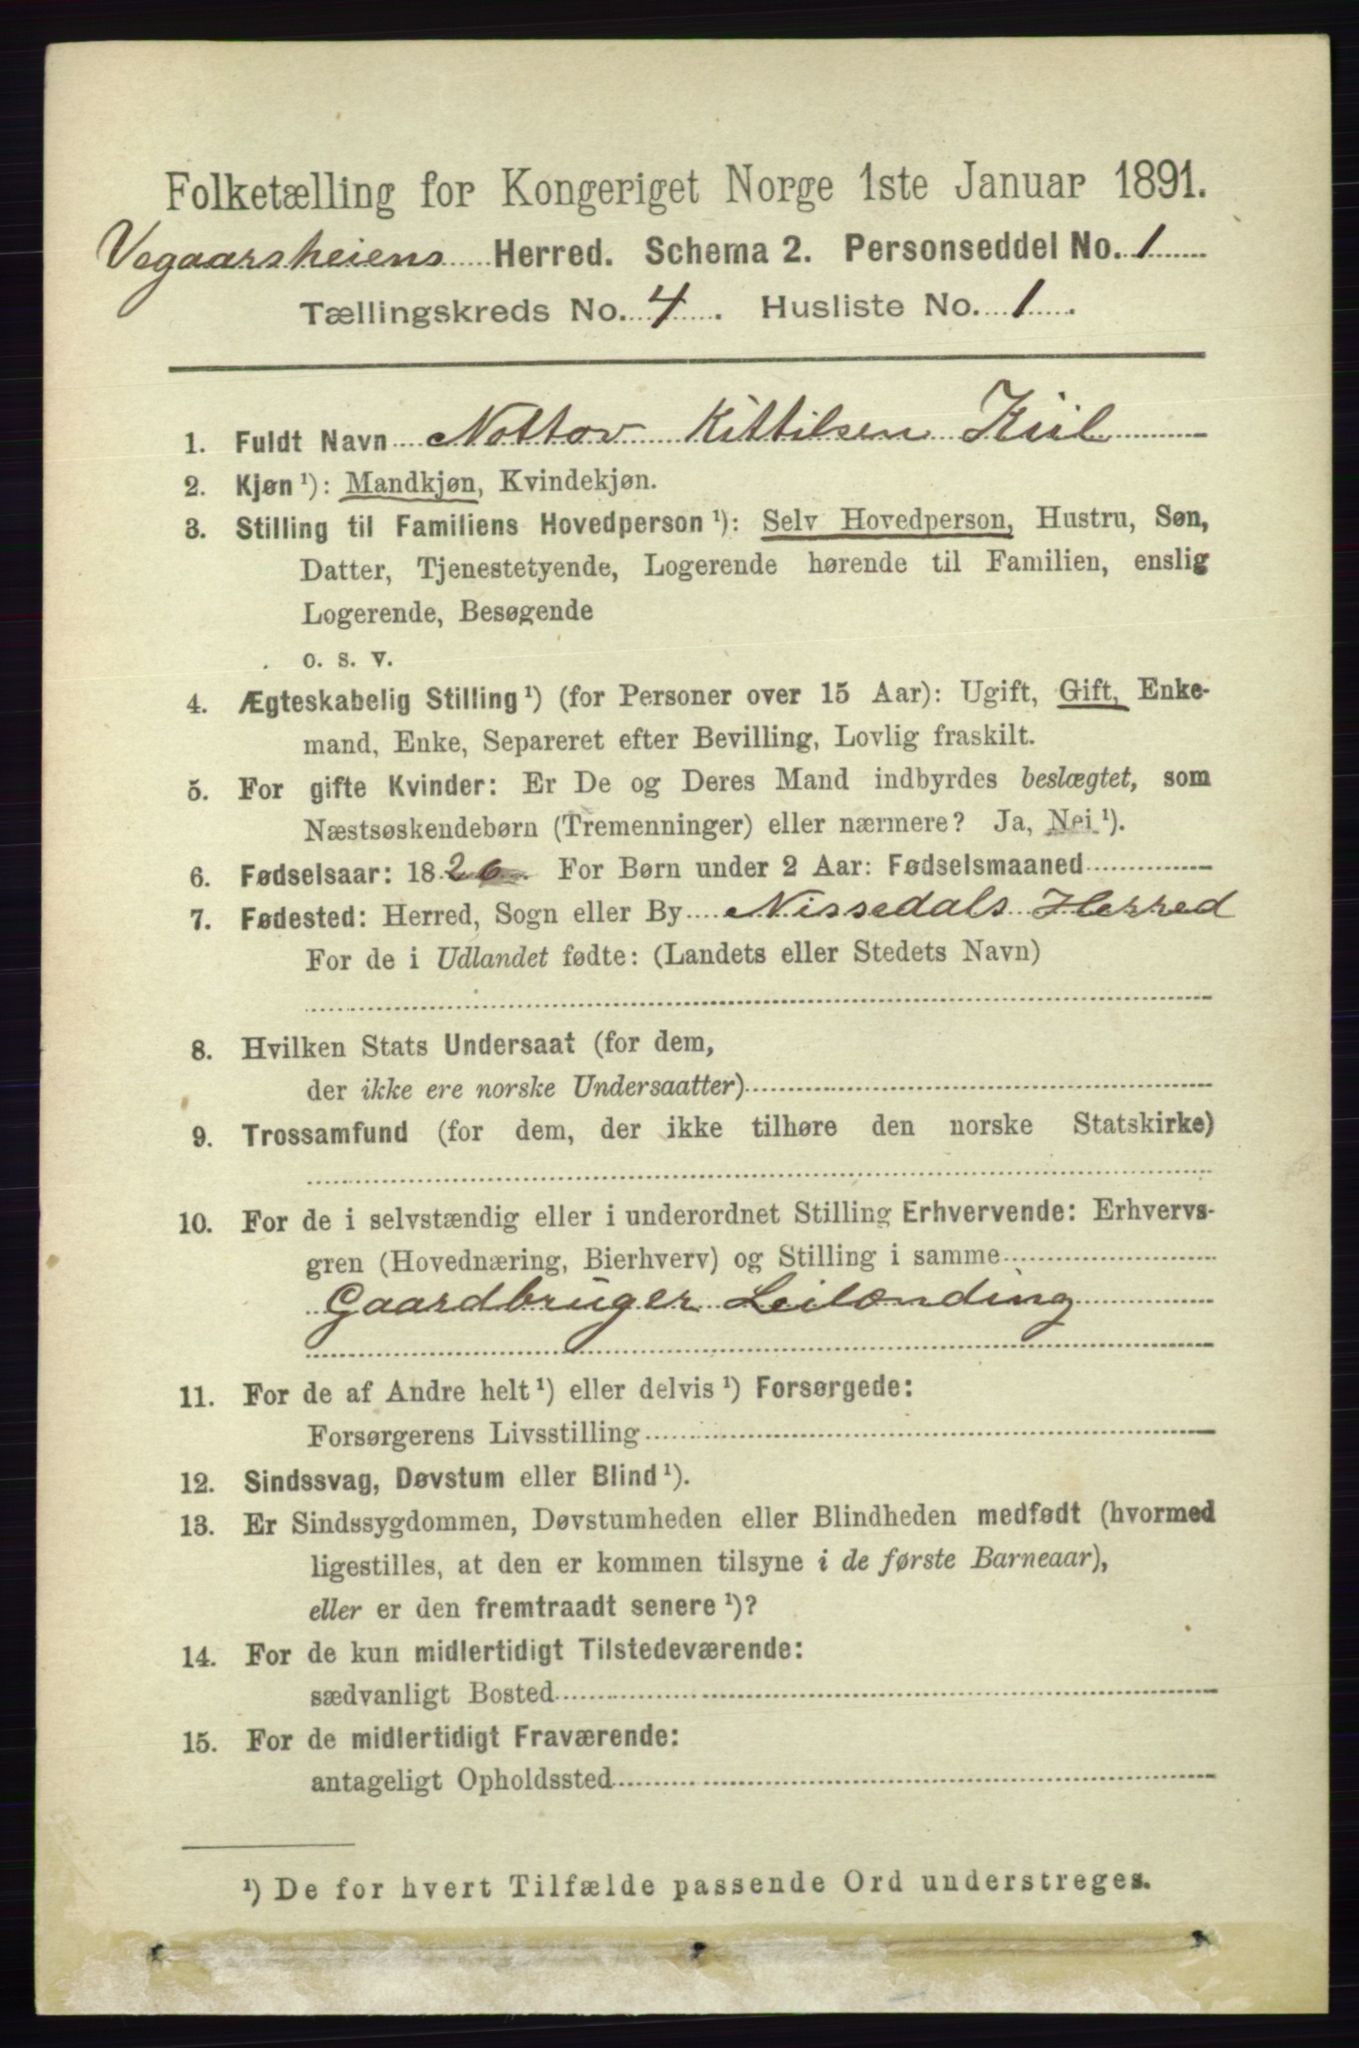 Folketælling for Kongeriget Norge 1ste Januar 1891.
Vegaarsheiens Herred. Schema 2. Personseddel No. 1
Tællingskreds No. 4. Husliste No. 1.
1. Fuldt Navn Nottov Kittilsen Kiil
2. Kjøn ¹): Mandkjøn, Kvindekjøn.
3. Stilling til Familiens Hovedperson ¹): Selv Hovedperson, Hustru, Søn,
Datter, Tjenestetyende, Logerende hørende til Familien, enslig
Logerende, Besøgende
o. s. v.
4. Ægteskabelig Stilling ¹) (for Personer over 15 Aar): Ugift, Gift, Enke-
mand, Enke, Separeret efter Bevilling, Lovlig fraskilt.
5. For gifte Kvinder: Er De og Deres Mand indbyrdes beslægtet, som
Næstsøskendebørn (Tremenninger) eller nærmere? Ja, Nei ¹).
6. Fødselsaar: 1826. For Børn under 2 Aar: Fødselsmaaned
7. Fødested: Herred, Sogn eller By Nissedals Herred
For de i Udlandet fødte: (Landets eller Stedets Navn)
8. Hvilken Stats Undersaat (for dem,
der ikke ere norske Undersaatter)
9. Trossamfund (for dem, der ikke tilhøre den norske Statskirke)
10. For de i selvstændig eller i underordnet Stilling Erhvervende: Erhvervs-
gren (Hovednæring, Bierhverv) og Stilling i samme
Gaardbruger Leilænding
11. For de af Andre helt ¹) eller delvis ¹) Forsørgede:
Forsørgerens Livsstilling
12. Sindssvag, Døvstum eller Blind ¹).
13. Er Sindssygdommen, Døvstumheden eller Blindheden medfødt (hvormed
ligestilles, at den er kommen tilsyne i de første Barneaar),
eller er den fremtraadt senere ¹)?
14. For de kun midlertidigt Tilstedeværende:
sædvanligt Bosted
15. For de midlertidigt Fraværende:
antageligt Opholdssted
¹) De for hvert Tilfælde passende Ord understreges.